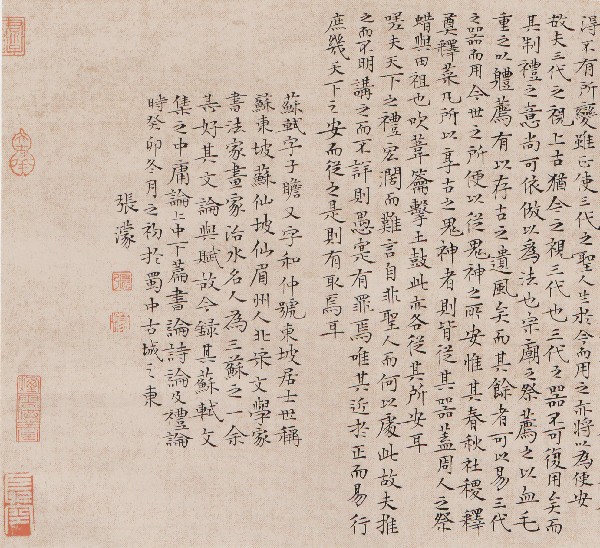 得不有所變雖正使三代之聖人生於今而用之亦將以為便安
故夫三代之視上古猶今之視三代也三代之器不可復用矣而
其制禮之意尚可依倣以為法也宗廟之祭薦之以血毛
重之以軆薦有以存古之遺風矣而其餘者可以易三代
之器而用今世之所便以從鬼神之所安惟其春秋社稷釋
奠釋菜凡所以享古之鬼神者則皆從其器蓋周人之祭
蜡與田祖也吹葦籥擊土鼓此亦各從其所安耳
嗟夫天下之禮宏闊而難言自非聖人而何以處此故夫推
之而不明講之而不詳則愚寔有罪焉唯其近於正而易行
庶幾天下之安而從之是則有取焉耳
蘇軾字子瞻又字和仲號東坡居士世稱
蘇東坡蘇仙坡仙眉州人北宋文學家
書法家畫家治水名人為三蘇之一余
甚好其文論與賦故今録其蘇軾文
集之中庸論上中下篇書論詩論及禮論
時癸卯冬月之初於蜀中古城之東
張濛